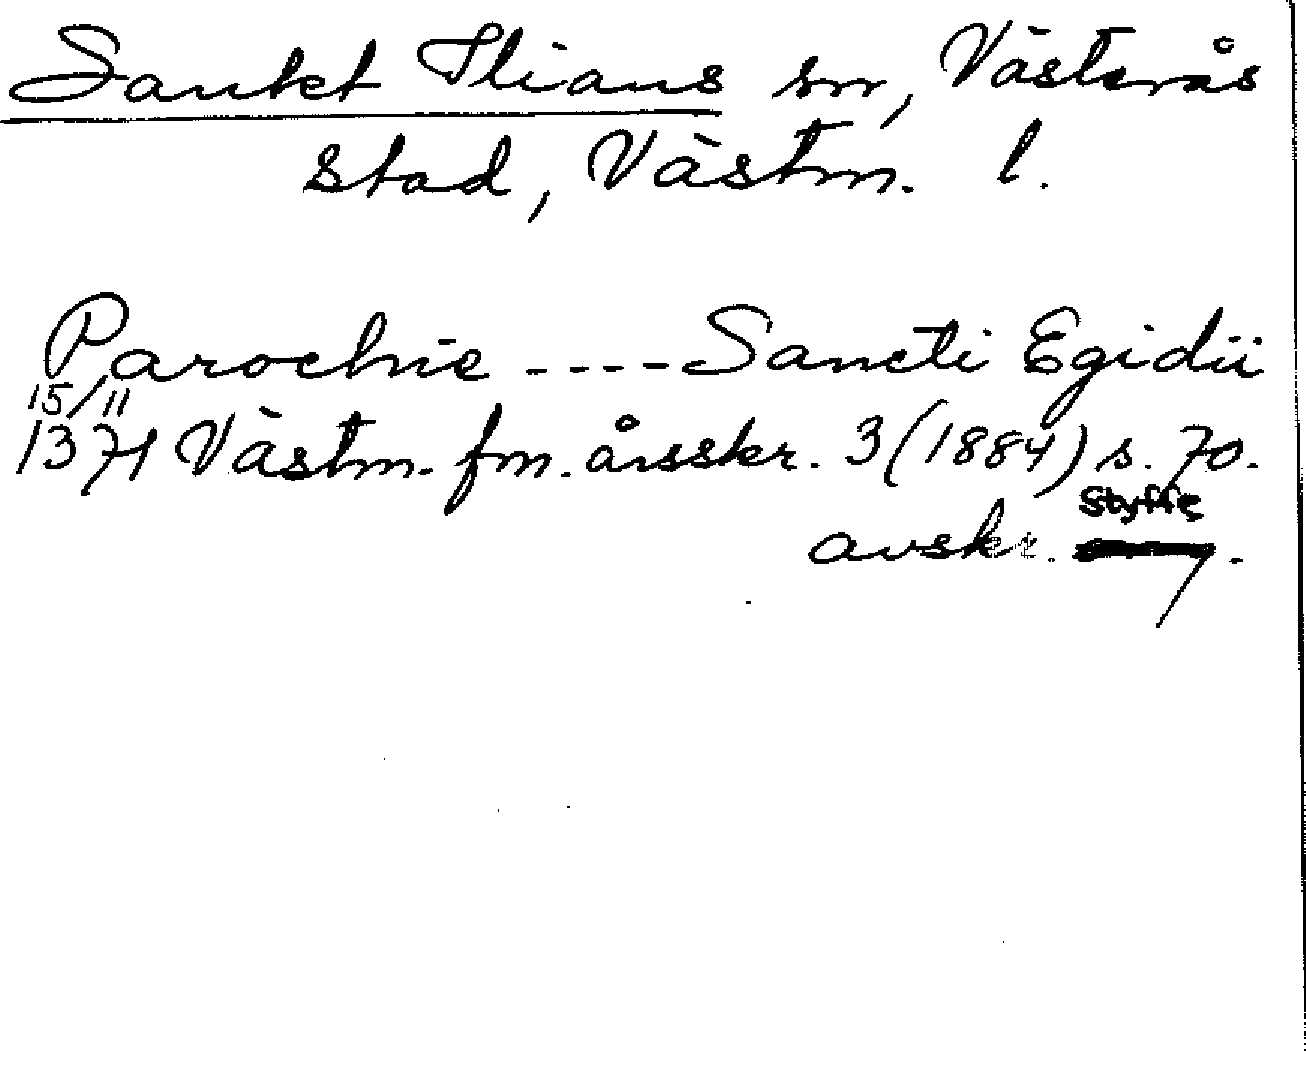 Sankt Ilians sn, Västerås
stad, Västm. l.
Parochie ---- Sancti Egidii
15/11
1371 Västm. fm. årsskr. 3 (1884) s. 70.
Styffe
avskr.